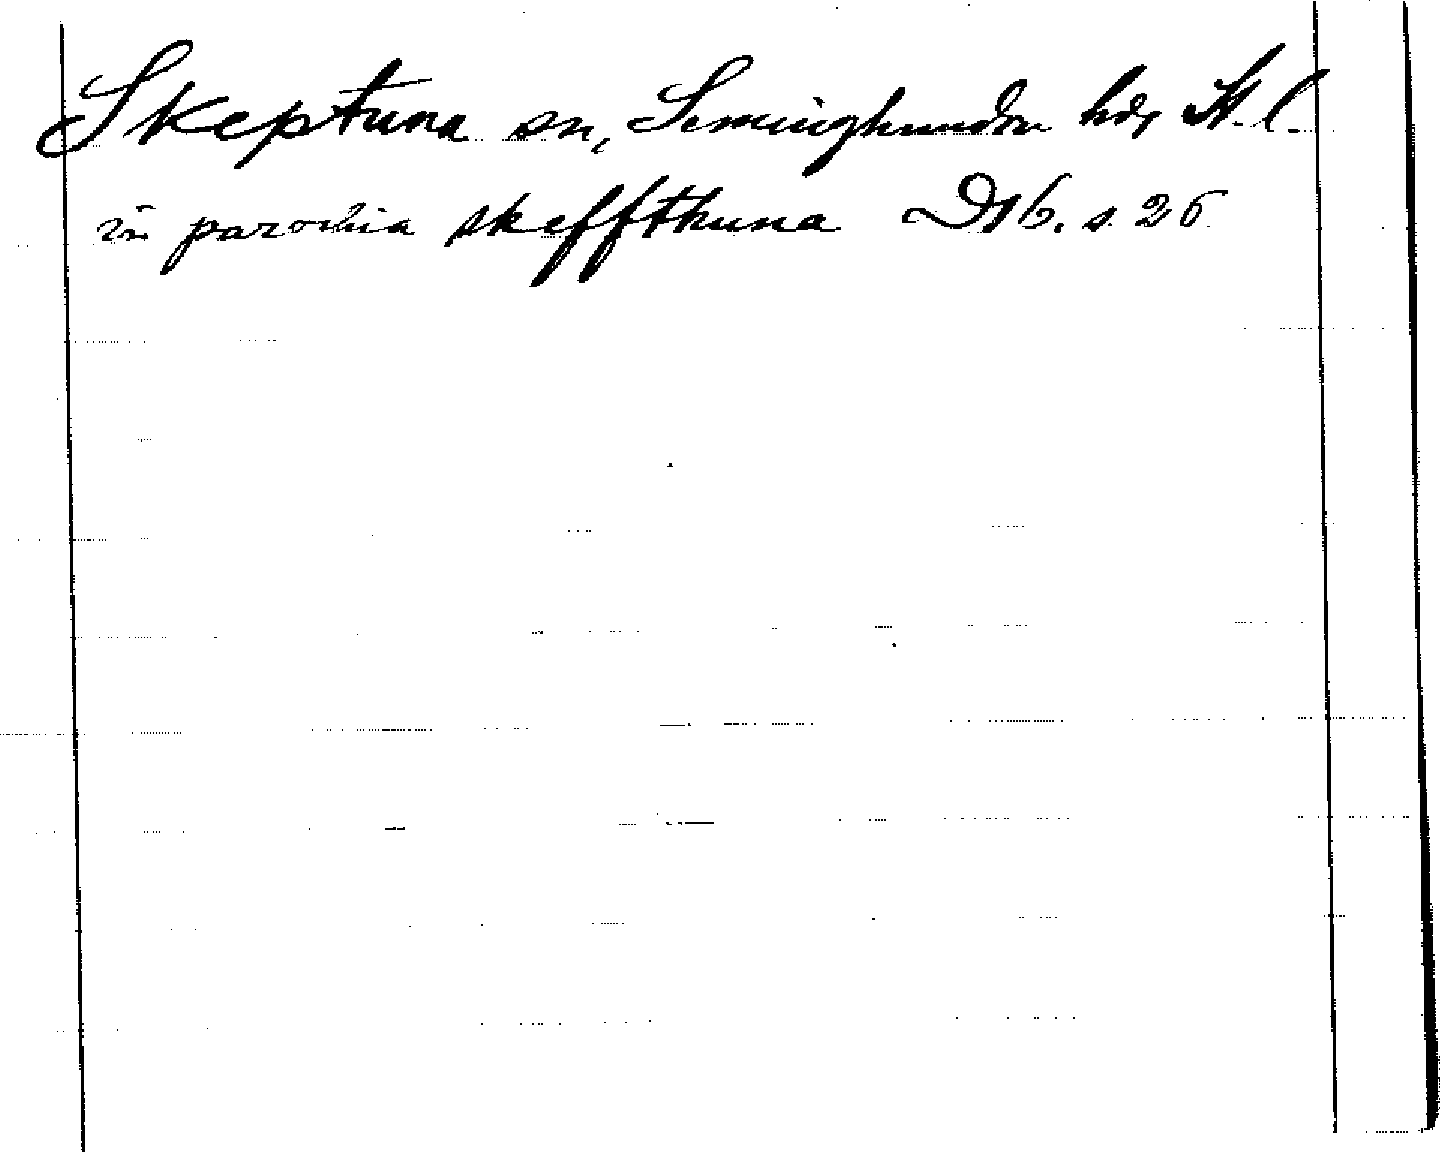 Skeptuna sn, Seminghundra hd, St. l.
in parochia skeffthuna D16. s. 26